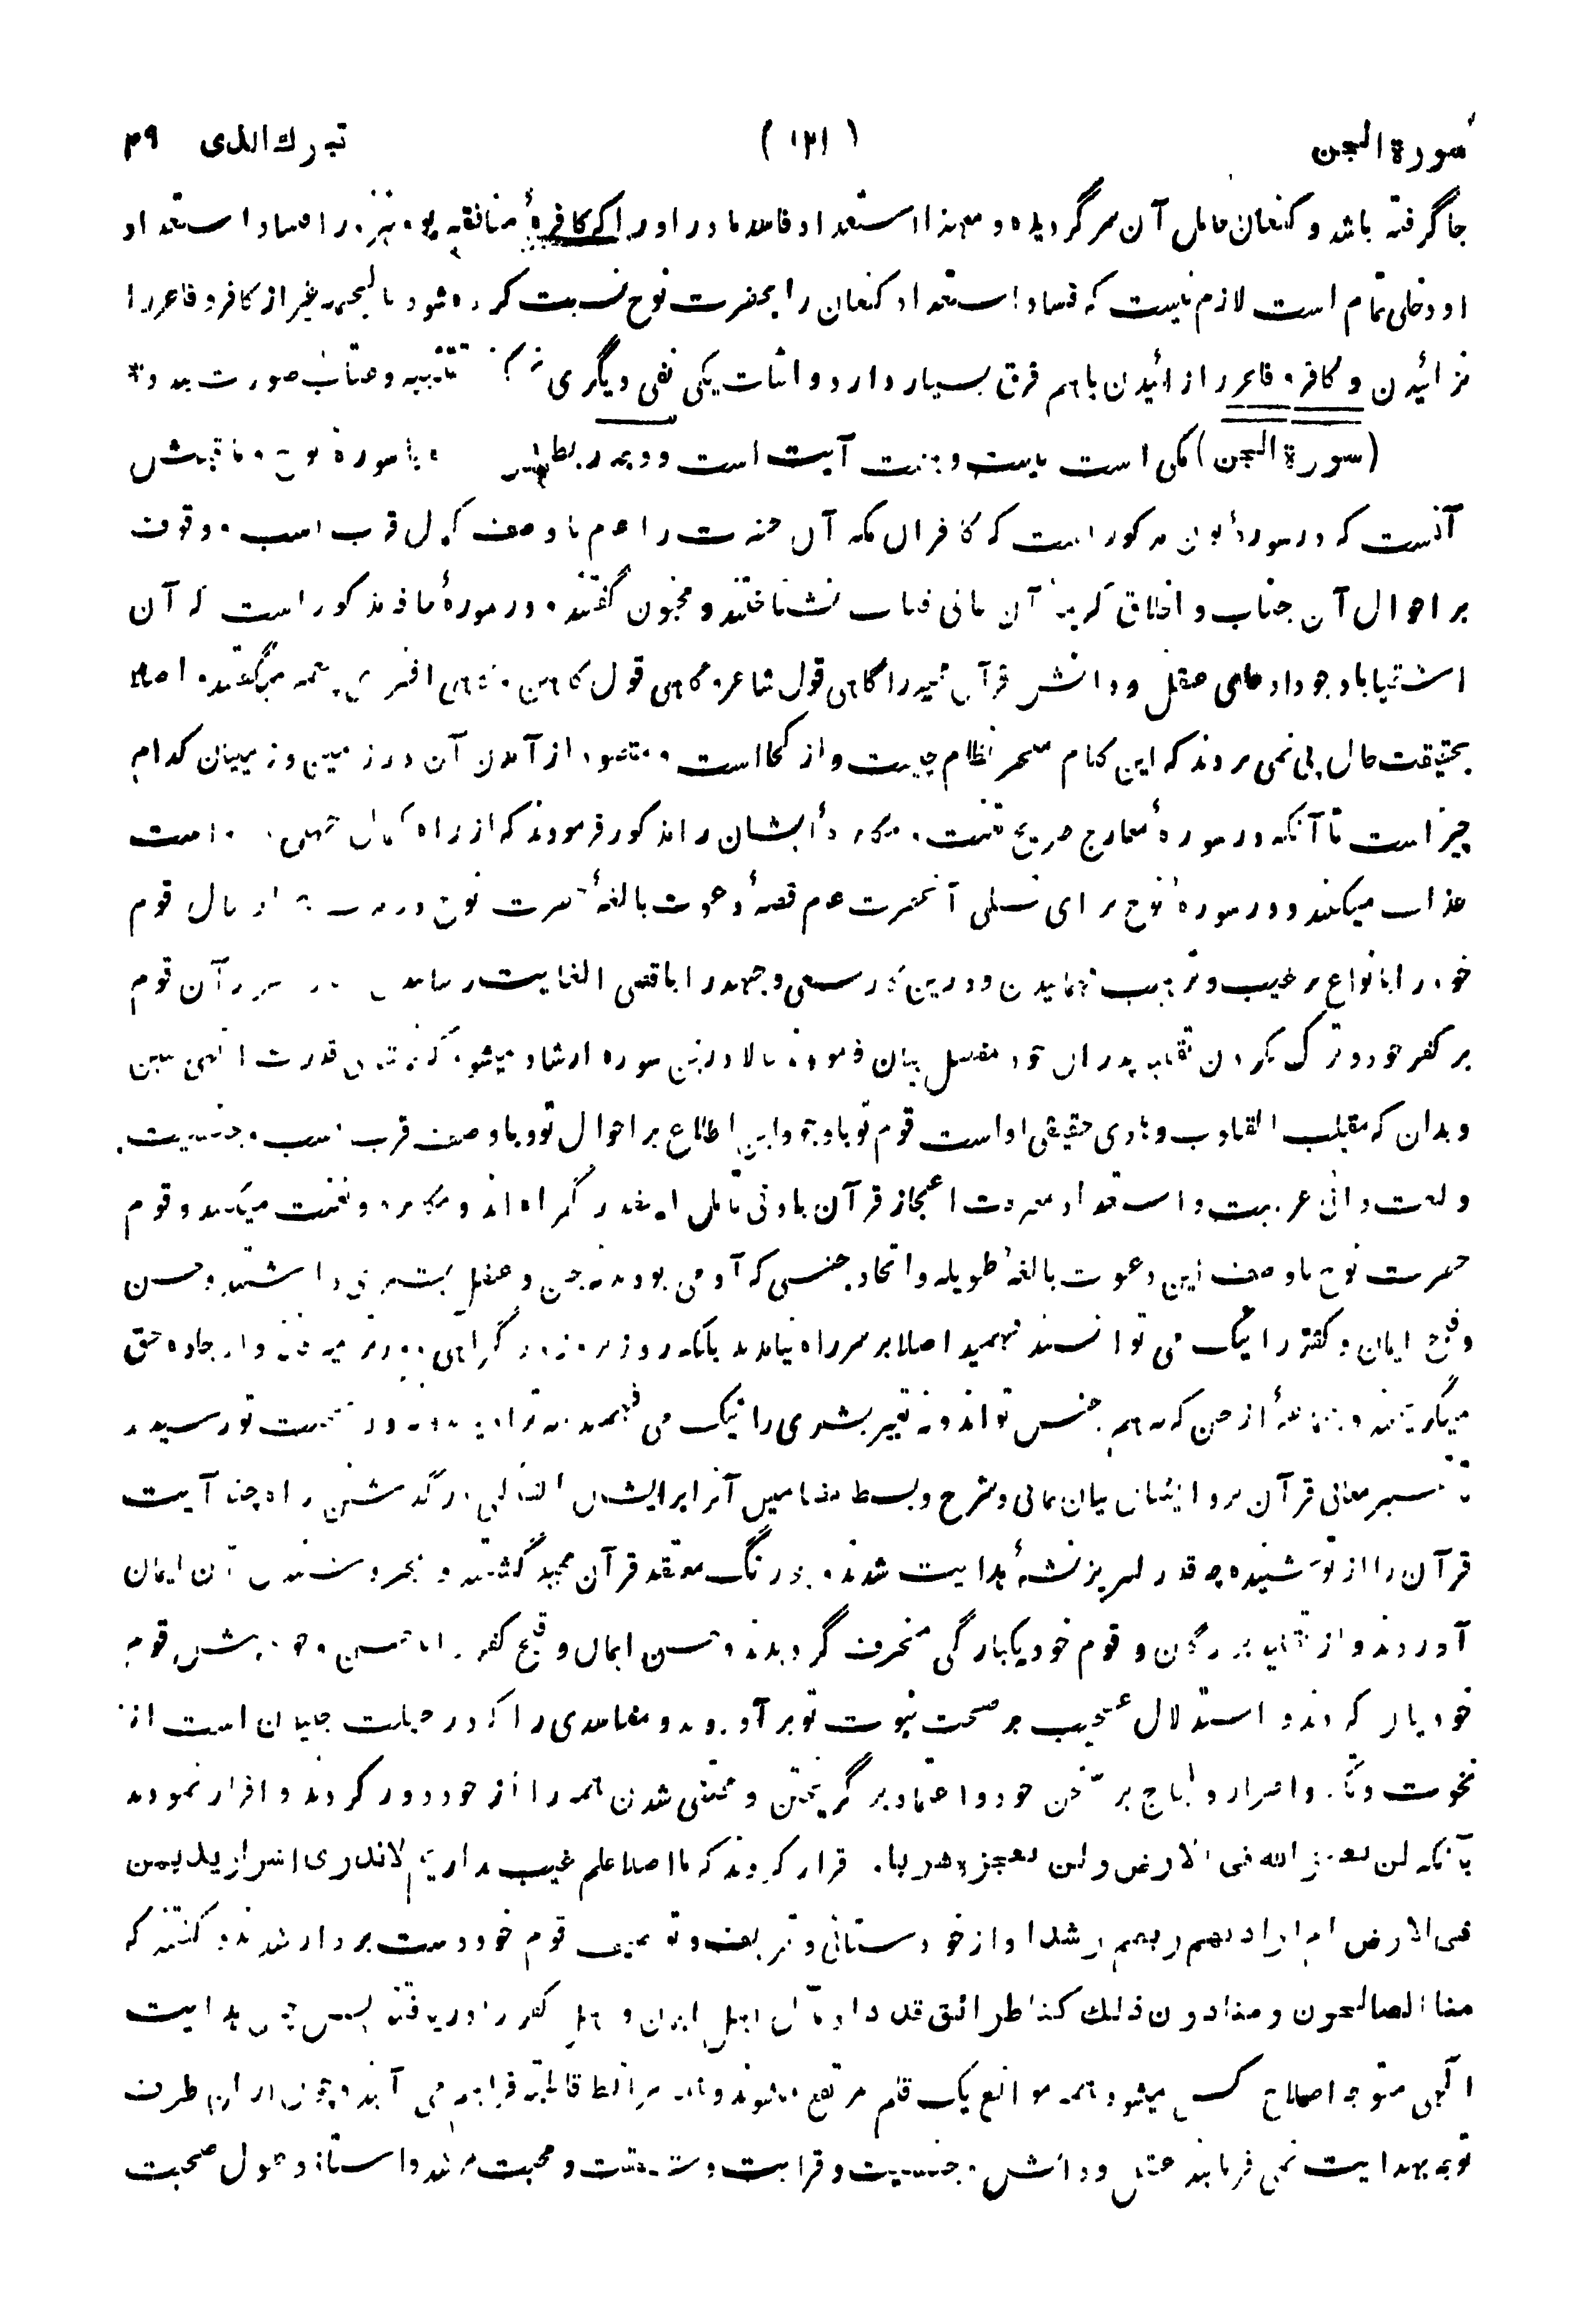 سورة الجن (۱۲۱) تبرك الذى ۲۹
جا گرفته باشد و کنعان حامل آن سر گردیده و معهذا استعداد فاسد مادر او را که کافرهٔ منافقه بود نیز در افساد استعداد
او دخلی تمام است لازم نیست که فساد استعداد کنعان را بحضرت نوح نسبت کرده شود بالجمله غیر از کافر و فاجر را
نزائیدن و کافر و فاجر را زائیدن باهم فرق بسیار دارد و اثبات یکی نفی دیگری تنبیه و عتاب صورت بندد
(سورة الجن) مکی است بیست و هشت آیت است و وجه ربط با سورهٔ نوح و ماقبلش
آنست که در سورهٔ نون مذکور است که کافران مکه آن حضرت را عم با وصف کمال قرب نسب و وقوف
بر احوال آن جناب و اخلاق کریمهٔ آن نشناختند و مجنون گفتند و در سورهٔ حاقه مذکور است که آن
اشقیا باوجود ادعای عقل و دانش قرآن مجید را گاهی قول شاعر و گاهی قول کاهن و گاهی میگفتند و اصلا
بحقیقت حال پی نمی بردند که این کلام معجز نظام چیست و از کجا است و مقصود از آمدن آن در زمین و زمینیان کدام
چیز است تا آنکه در سورهٔ معارج صریح ایشان را مذکور فرمودند که از راه کمال درخواست
عذاب میکنند و در سورهٔ نوح برای تسلی آنحضرت عم قصهٔ دعوت بالغهٔ حضرت نوح در قوم
خود را بانواع ترغیب و ترهیب فهمانیدن و درین کار سعی و جهد را باقصی الغایت رسانیدن آن قوم
بر کفر خود و ترک نکردن تقلید پدران خود مفصل بیان فرمودند حالا درین سوره ارشاد میشود که قدرت الهی ببین
و بدان که مقلب القلوب و هادی حقیقی او است قوم تو باوجود این اطلاع بر احوال تو و باوصف قرب نسب و جنسیت
و لغت دانی عربیت و استعداد معرفت اعجاز قرآن بادنی تامل اینقدر گمراه اند و مکابره و تعنت میکنند و قوم
حضرت نوح باوصف این دعوت بالغهٔ طویله و اتحاد جنسی که آدمی بودند نه جن و عقل داشتند و حسن
و قبح ایمان و کفر را نیک می توانستند فهمید اصلا بر سر راه نیامدند بلکه روز بروز در گمراهی و از جاده حق
میگریختند و جماعهٔ از جن که نه هم جنس تو اند و نه تقریر بشری را نیک می فهمند نه در صحبت تو رسیدند
تفسیر معانی قرآن بر ایشان بیان نمائی و شرح و بسط مضامین آنرا بر ایشان القا کنی در گذشتن راه چند آیت
قرآن را از تو شنیده چه قدر لبریز نشهٔ هدایت شدند و معتقد قرآن مجید گشتند و بمجرد شنیدن آن ایمان
آوردند و از تقلید بزرگان و قوم خود یکبارگی منحرف گردیدند و حسن ایمان و قبح کفر را پیش قوم
خود کردند و استدلال عجیب بر صحت نبوت تو بر آوردند و مفاسدی را که در جبلت جنیان است از
نخوت و تکبر و اصرار و لجاج بر سخن خود و اعتماد بر گریختن و مختفی شدن همه را از خود دور کردند و اقرار نمودند
بآنکه لن نعجز الله فى الارض ولن نعجزه هربا و اقرار کردند که ما اصلا علم غیب نداریم لا ندرى اشر اريد بمن
فى الارض ام اراد بهم ربهم رشدا و از خود ستائی و تعریف و توصیف قوم خود دست بردار شدند و گفتند که
منا الصالحون ومنا دون ذلك كنا طرائق قددا و مآل اهل ایمان و اهل کفر را دریافتند پس چون هدایت
الهی متوجه اصلاح کسی میشود همه موانع یک قلم مرتفع میشوند و همه شرائط قابلیت فراهم می آیند و چون از ان طرف
توجه بهدایت نمی فرمایند عقل و دانش و جنسیت و قرابت و شفقت و محبت مرشد و استاذ و طول صحبت